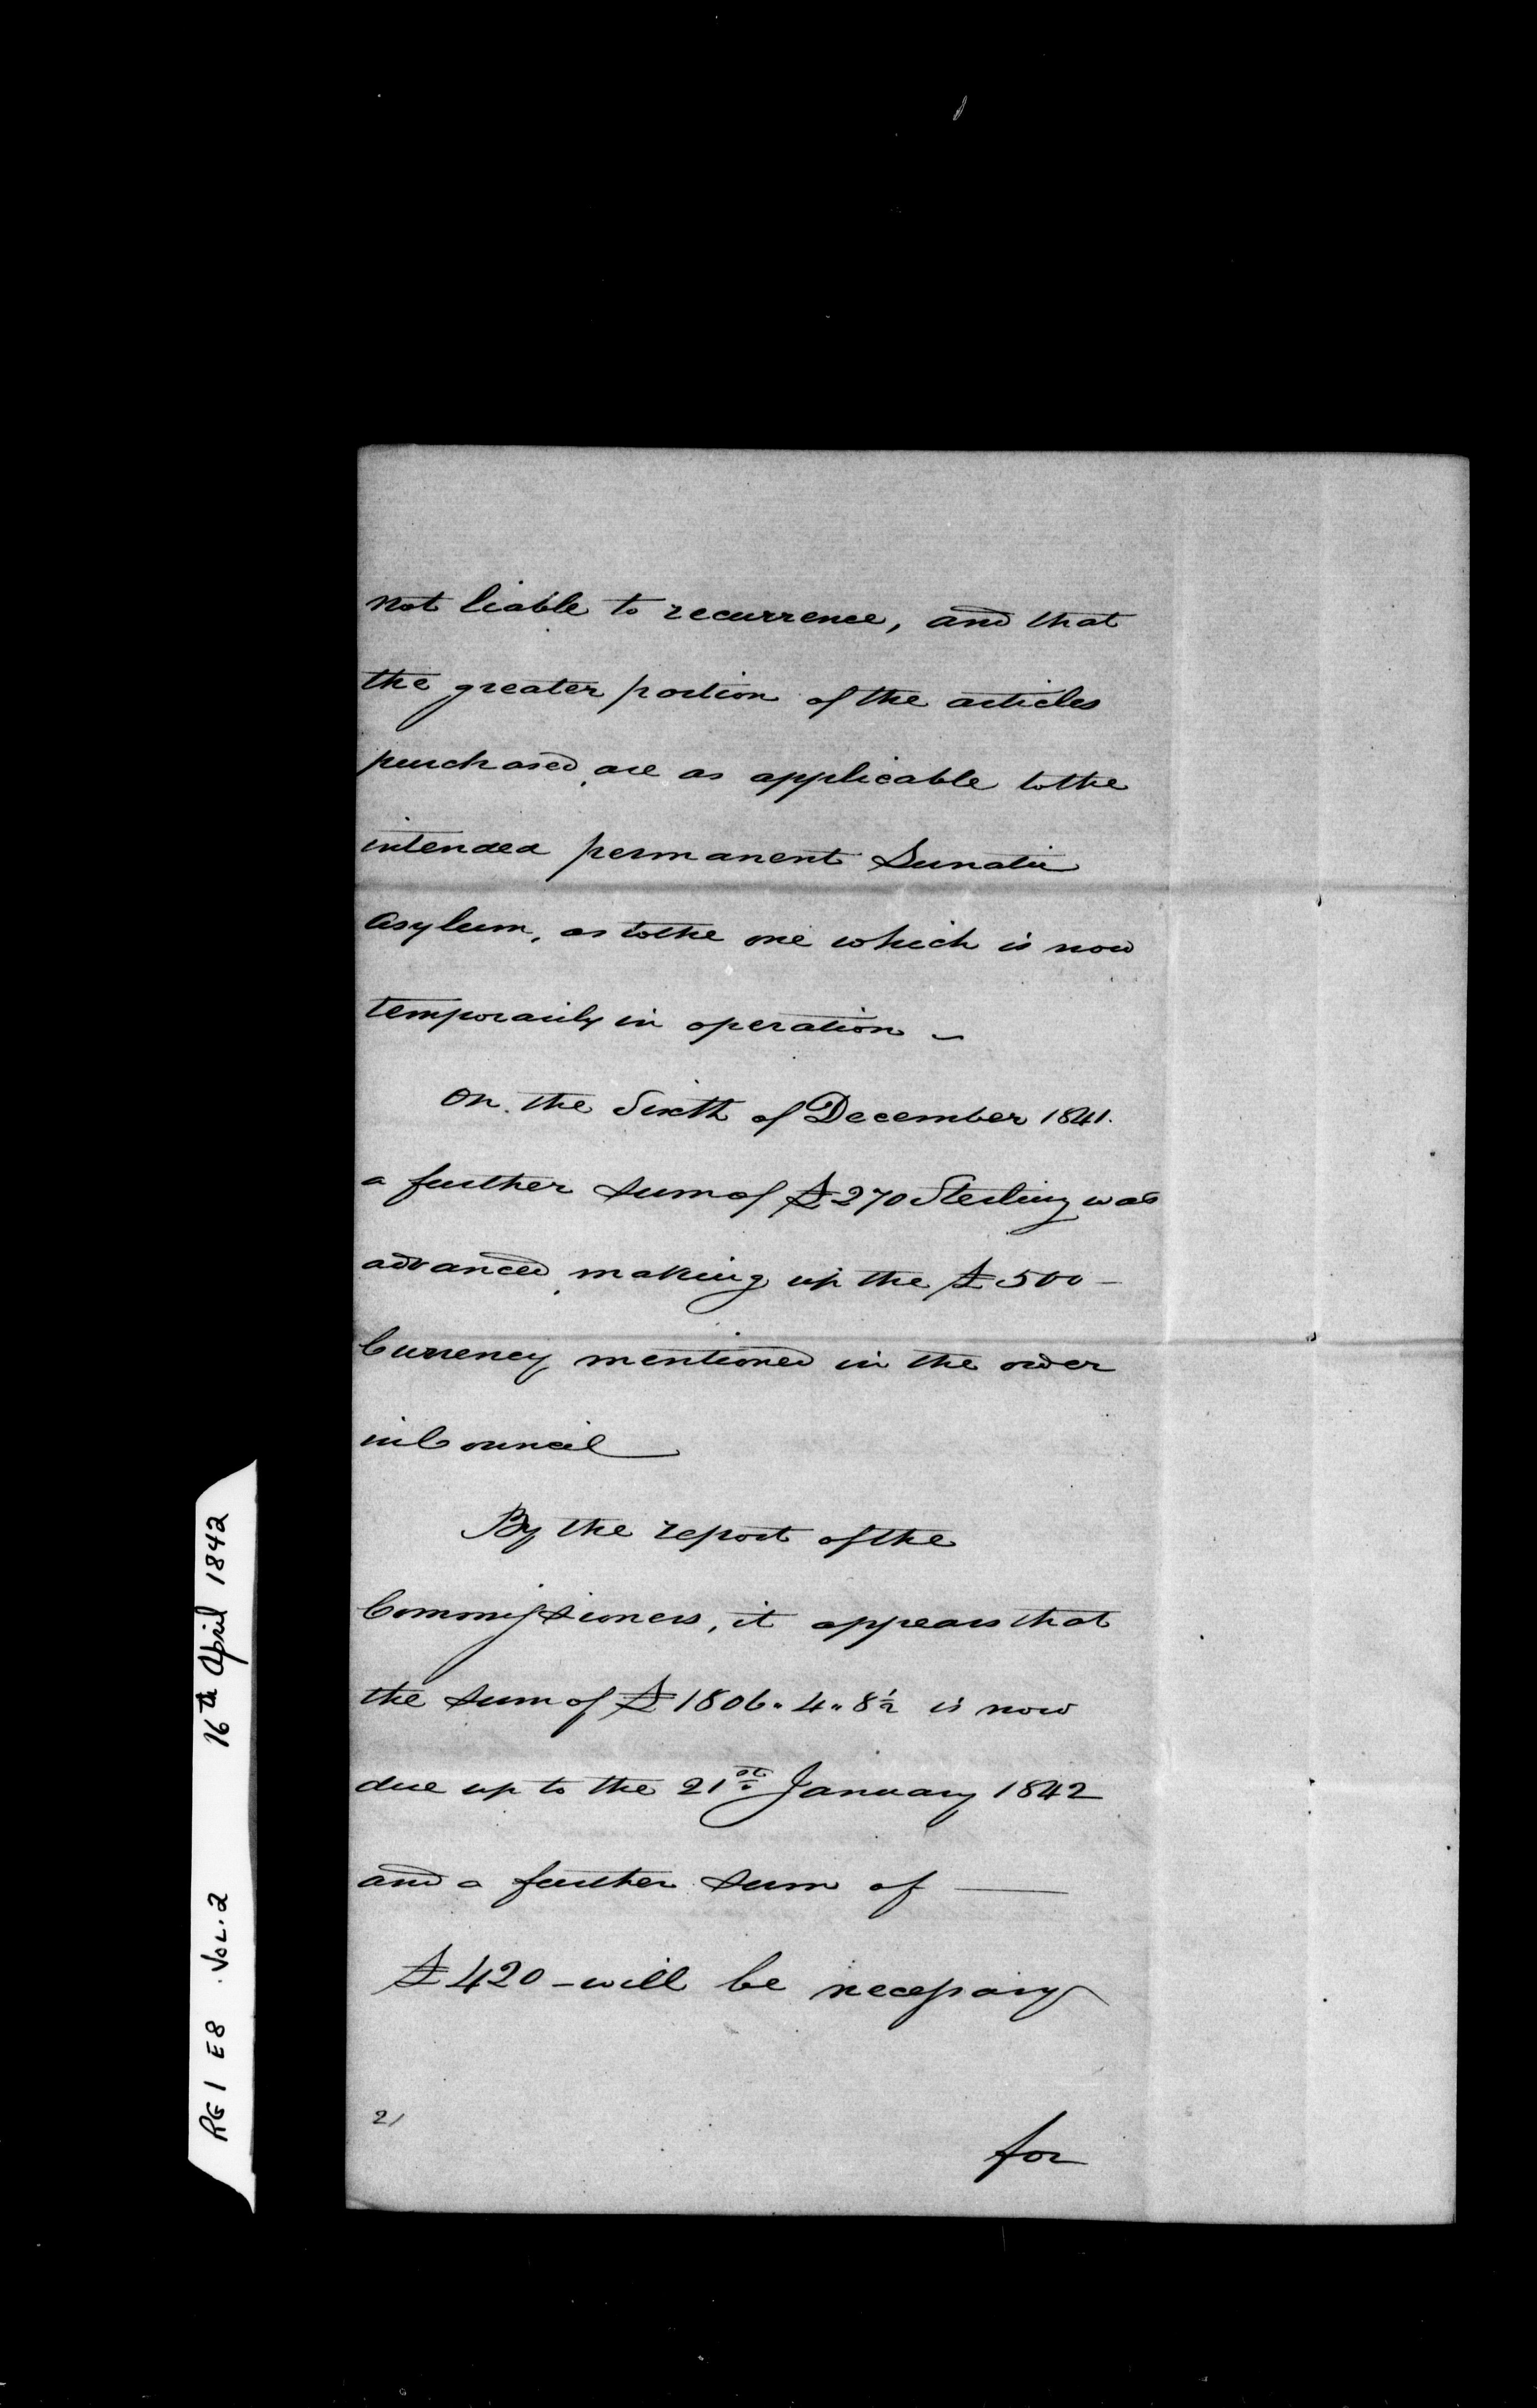 not liable to recurrence, and that
the greater portion of the articles
purchased, are as applicable to the
intended permanent Lunatic
Asylum, as to the one which is now
temporarily in operation –
On the Sixth of December 1841.
a further Sum of £270 Sterling was
advanced, making up the £500 –
Currency mentioned in the order
in Council —
By the report of the
Commissioners, it appears that
the Sum of £1806.. 4.. 8½ is now
due up to the 21st January 1842
and a further Sum of —
£420 – will be necessary
21
for
RG 1 E8 VOL. 2 16th April 1842